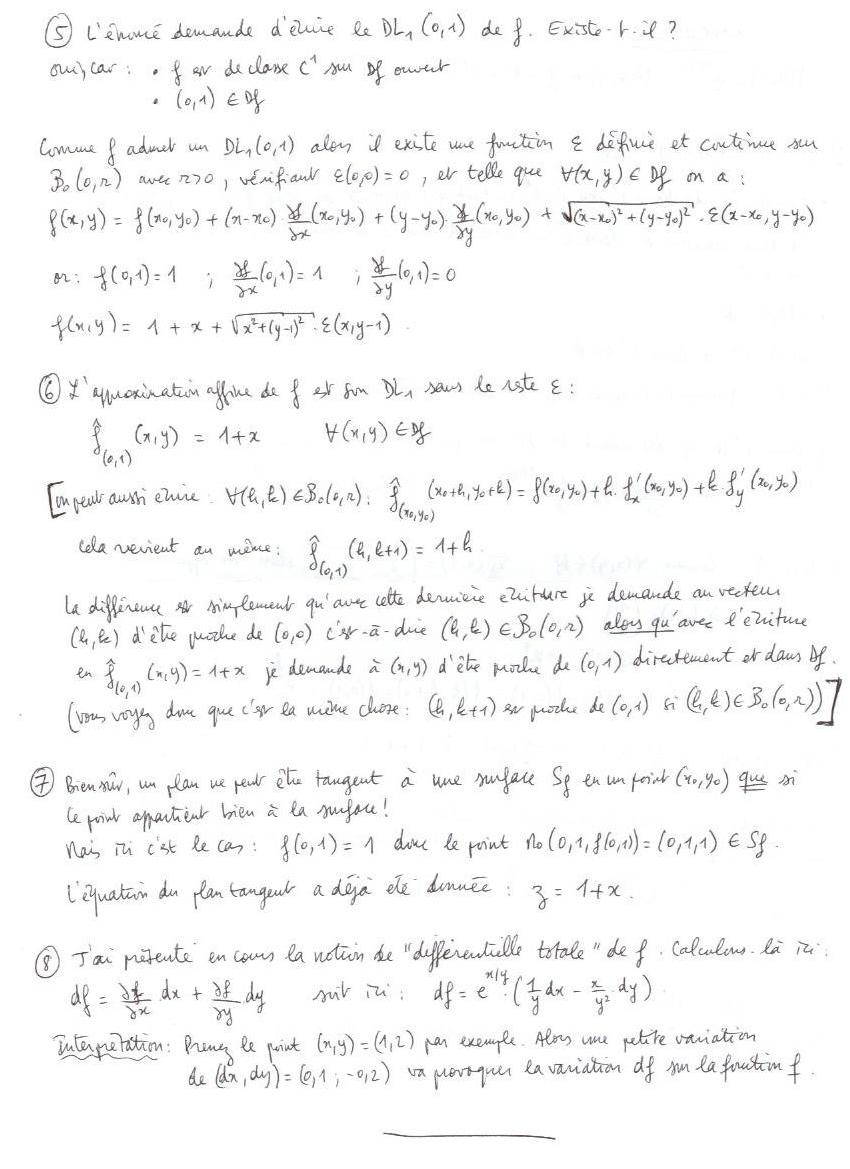 ⑤ L'énoncé demande d'écrire le DL₁(0,1) de f. Existe-t-il ?
oui, car : • f est de classe C¹ sur Df ouvert
• (0,1) ∈ Df
Comme f admet un DL₁(0,1) alors il existe une fonction ε définie et continue sur
B₀(0,r) avec r>0, vérifiant ε(0,0)=0, et telle que ∀(x,y) ∈ Df on a :
f(x,y) = f(x₀,y₀) + (x-x₀) ∂f/∂x (x₀,y₀) + (y-y₀) ∂f/∂y (x₀,y₀) + √((x-x₀)²+(y-y₀)²) . ε(x-x₀, y-y₀)
or : f(0,1)=1 ; ∂f/∂x (0,1)=1 ; ∂f/∂y (0,1)=0
f(x,y) = 1 + x + √(x²+(y-1)²) . ε(x,y-1).
⑥ L'approximation affine de f est son DL₁ sans le reste ε :
f̂₍₀,₁₎ (x,y) = 1+x ∀(x,y) ∈ Df
[on peut aussi écrire : ∀(h,k) ∈ B₀(0,r) : f̂₍x₀,y₀₎ (x₀+h, y₀+k) = f(x₀,y₀) + h. f'x (x₀,y₀) + k f'y (x₀,y₀)
Cela revient au même : f̂₍₀,₁₎ (h, k+1) = 1+h.
La différence est simplement qu'avec cette dernière écriture je demande au vecteur
(h,k) d'être proche de (0,0) c'est-à-dire (h,k) ∈ B₀(0,r) alors qu'avec l'écriture
en f̂₍₀,₁₎ (x,y) = 1+x je demande à (x,y) d'être proche de (0,1) directement et dans Df.
(vous voyez donc que c'est la même chose : (h,k+1) est proche de (0,1) si (h,k) ∈ B₀(0,r))]
⑦ Bien sûr, un plan ne peut être tangent à une surface Sf en un point (x₀,y₀) que si
ce point appartient bien à la surface !
Mais ici c'est le cas : f(0,1) = 1 donc le point M₀(0,1,f(0,1)) = (0,1,1) ∈ Sf.
L'équation du plan tangent a déjà été donnée : z = 1+x.
⑧ J'ai présenté en cours la notion de "différentielle totale" de f. Calculons-là ici :
df = ∂f/∂x dx + ∂f/∂y dy soit ici : df = e^(x/y) . (1/y dx - x/y² . dy).
Interprétation : Prenez le point (x,y) = (1,2) par exemple. Alors une petite variation
de (dx,dy) = (0,1 ; -0,2) va provoquer la variation df sur la fonction f.